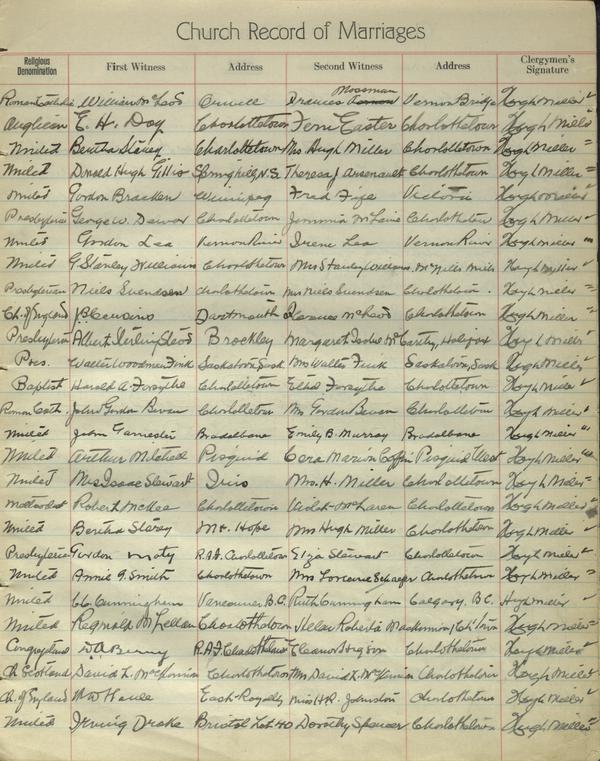 Church Record of Marriages
Religious Denomination First Witness Address Second Witness Address Clergymen's Signature
Mossman
Roman Catholic William McLeod Orwell Frances Vernon Vernon Bridge Hugh Miller
Anglican E. H. Day Charlottetown Fern Easter Charlottetown Hugh Miller
United Bertha Stavey Charlottetown Mrs Hugh Miller Charlottetown Hugh Miller
United Donald Hugh Gillis Springhill N.S. Theresa J Arsenault Charlottetown Hugh Miller
United Gordon Bracken Winnipeg Fred Victoria Hugh Miller
Presbyterian George W. Dewar Charlottetown Jemima McLaine Charlottetown Hugh Miller
United Gordon Lea Vernon River Irene Lea Vernon River Hugh Miller
United G Stanley Williams Charlottetown Mrs Stanley Williams McNeills Mills Hugh Miller
Presbyterian Niels Svendsen Charlottetown Mrs Niels Svendsen Charlottetown Hugh Miller
Ch. of England Dartmouth Frances McLeod Charlottetown Hugh Miller
Presbyterian Albert Sterling Brockley Margaret McCarthy, Halifax Hugh Miller
Pres. Walter Woodman Fink Saskatoon, Sask Mrs Walter Fink Saskatoon, Sask Hugh Miller
Baptist Harold A Forsythe Charlottetown Ethel Forsythe Charlottetown Hugh Miller
Roman Cath. John Gordon Bevan Charlottetown Mrs Gordon Bevan Charlottetown Hugh Miller
United John Bradalbane Emily B. Murray Bradalbane Hugh Miller
United Arthur Mitchell Pisquid Cora Marion Coffin Pisquid West Hugh Miller
United Mrs Isaac Stewart Iris Mrs. H. Miller Charlottetown Hugh Miller
Methodist Robert McKee Charlottetown Violet McLaren Charlottetown Hugh Miller
United Bertha Stavey Mt. Hope Mrs Hugh Miller Charlottetown Hugh Miller
Presbyterian Gordon R.A.F. Charlottetown Eliza Stewart Charlottetown Hugh Miller
United Annie G. Smith Charlottetown Mrs Lorraine Schaefer Charlottetown Hugh Miller
United Cunningham Vancouver B.C. Ruth Cunningham Calgary, B.C. Hugh Miller
United Reginald McLellan Charlottetown Roberta MacKinnon, Ch'town Hugh Miller
Congregational R.A.F. Charlottetown Eleanor Charlottetown Hugh Miller
Ch Scotland David L. McKinnon Charlottetown Mrs David L. McKinnon Charlottetown Hugh Miller
Ch. of England East Royalty Miss H.R. Johnston Charlottetown Hugh Miller
United Irving Drake Bristol Lot 40 Dorothy Spencer Charlottetown Hugh Miller